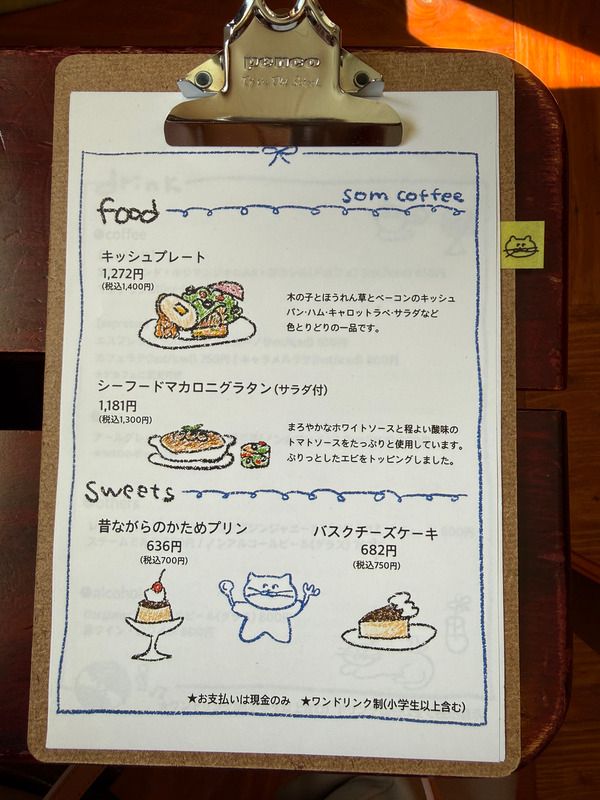 penco
som coffee
food
キッシュプレート
1,272円
(税込1,400円)
木の子とほうれん草とベーコンのキッシュ
パン・ハム・キャロットラペ・サラダなど
色とりどりの一品です。
シーフードマカロニグラタン(サラダ付)
1,181円
(税込1,300円)
まろやかなホワイトソースと程よい酸味の
トマトソースをたっぷりと使用しています。
ぷりっとしたエビをトッピングしました。
Sweets
昔ながらのかためプリン
636円
(税込700円)
バスクチーズケーキ
682円
(税込750円)
★お支払いは現金のみ ★ワンドリンク制(小学生以上含む)